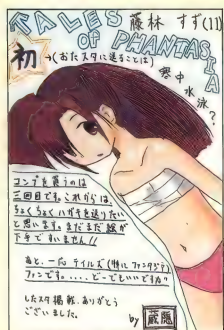 TALES OF PHANTASIA
藤林 すず(11)
初
→(おたスタに送ることは)
寒中水泳?
コンプを買うのは
三回目です。これからは、
ちょくちょくハガキを送りたい
と思います。まだまだ絵が
下手ですいません!!
あと、一応 テイルズ(特にファンタジア)
ファンです。....どーでもいいですね
したスタ掲載、ありがとう
ございました。
by